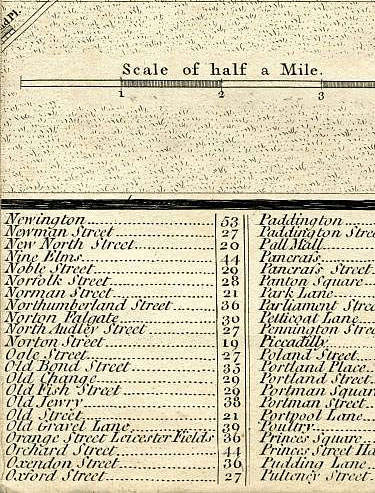 d Pl.
Scale of half a Mile.
1 2 3
Newington 53
Newman Street 27
New North Street 20
Nine Elms 44
Noble Street 29
Norfolk Street 28
Norman Street 21
Northumberland Street 36
Norton Falgate 30
North Audley Street 27
Norton Street 19
Ogle Street 27
Old Bond Street 35
Old Change 29
Old Fish Street 29
Old Jewry 38
Old Street 21
Old Gravel Lane 39
Orange Street Leicester Fields 36
Orchard Street 44
Oxendon Street 36
Oxford Street 27
Paddington
Paddington Stree
Pall Mall
Pancrais
Pancrais Street
Panton Square
Park Lane
Parliament Stree
Petticoat Lane
Pennington Stree
Piccadilly
Poland Street
Portland Place
Portland Street
Portman Squar
Portman Street
Portpool Lane
Poultry
Princes Square
Princes Street Ha
Pudding Lane
Pulteney Street